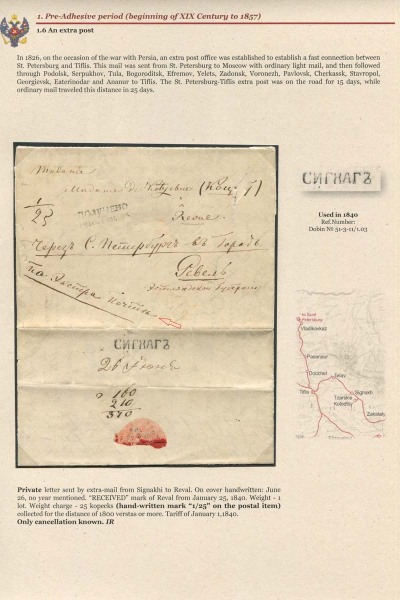 1. Pre-Adhesive period (beginning of XIX Century to 1857)
1.6 An extra post
In 1826, on the occasion of the war with Persia, an extra post office was established to establish a fast connection between
St. Petersburg and Tiflis. This mail was sent from St. Petersburg to Moscow with ordinary light mail, and then followed
through Podolsk, Serpukhov, Tula, Bogoroditsk, Efremov, Yelets, Zadonsk, Voronezh, Pavlovsk, Cherkassk, Stavropol,
Georgievsk, Eaterinodar and Ananur to Tiflis. The St. Petersburg-Tiflis extra post was on the road for 15 days, while
ordinary mail traveled this distance in 25 days.
Madame
Madame de
1/25
ПОЛУЧЕНО
Черезъ С. Петербургъ въ Городъ
Ревель
по Экстра почтѣ
СИГНАГЪ
160
210
370
СИГНАГЪ
Used in 1840
Ref.Number:
Dobin № 51-3-11/1.03
to Saint
Petersburg
Vladikavkaz
Pasanaur
Douchet
Telav
Tiflis
Signakh
Tsarskie
Kolodtsy
Zakataly
Private letter sent by extra-mail from Signakhi to Reval. On cover handwritten: June
26, no year mentioned. “RECEIVED” mark of Reval from January 25, 1840. Weight - 1
lot. Weight charge - 25 kopecks (hand-written mark “1/25” on the postal item)
collected for the distance of 1800 verstas or more. Tariff of January 1,1840.
Only cancellation known. IR